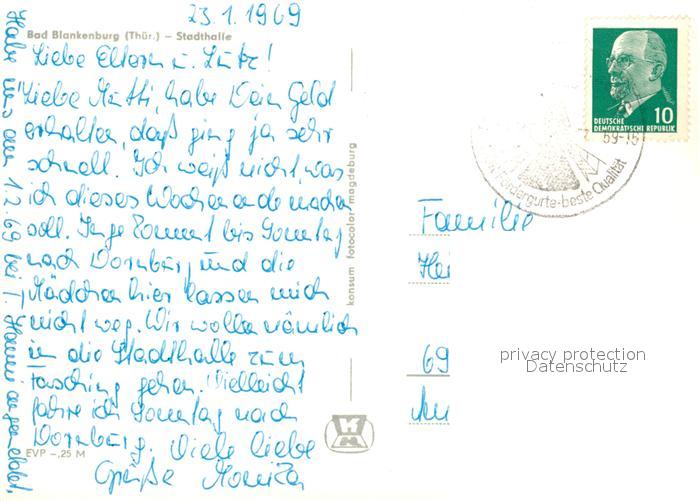 23.1.1969
Bad Blankenburg (Thür.) – Stadthalle
Liebe Eltern u. Lutz!
Liebe Mutti, habe Dein Geld
erhalten, daß ging ja sehr
schnell. Ich weiß nicht, was
ich dieses Wochenende machen
soll. Inge kommt bis Sonntag
nach Dornburg und die
Mädchen hier lassen mich
nicht weg. Wir wollen nämlich
in die Stadthalle zum
Fasching gehen. Vielleicht
fahre ich Sonntag nach
Dornburg. Viele liebe
Grüße Monika
EVP –,25 M
Habe uns am 1.2.69 bei T. Hanni angemeldet.
konsum fotocolor magdeburg
10
DEUTSCHE
DEMOKRATISCHE REPUBLIK
69-15
dergurte-beste Qualität
Familie
Hei
69
privacy protection
Datenschutz